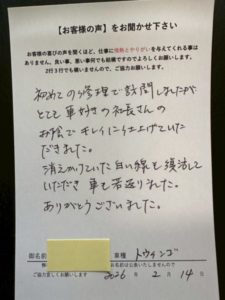 【お客様の声】をお聞かせ下さい
お客様の喜びの声を聞くほど、仕事に情熱とやりがいを与えてくれる事は
ありません。良い事、悪い事何でも結構ですのでよろしくお願いします。
2行3行でも構いませんので、ご協力お願いします。
初めての修理で訪問しましたが
とても車好きの社長さんの
お陰でキレイに仕上げていた
だきました。
消えかけていた白い線も復活して
いただき車も若返りました。
ありがとうございました。
御名前
車種 トゥインゴ
お名前は公表いたしませんので
ご協力宜しくお願いします
2026年2月14日